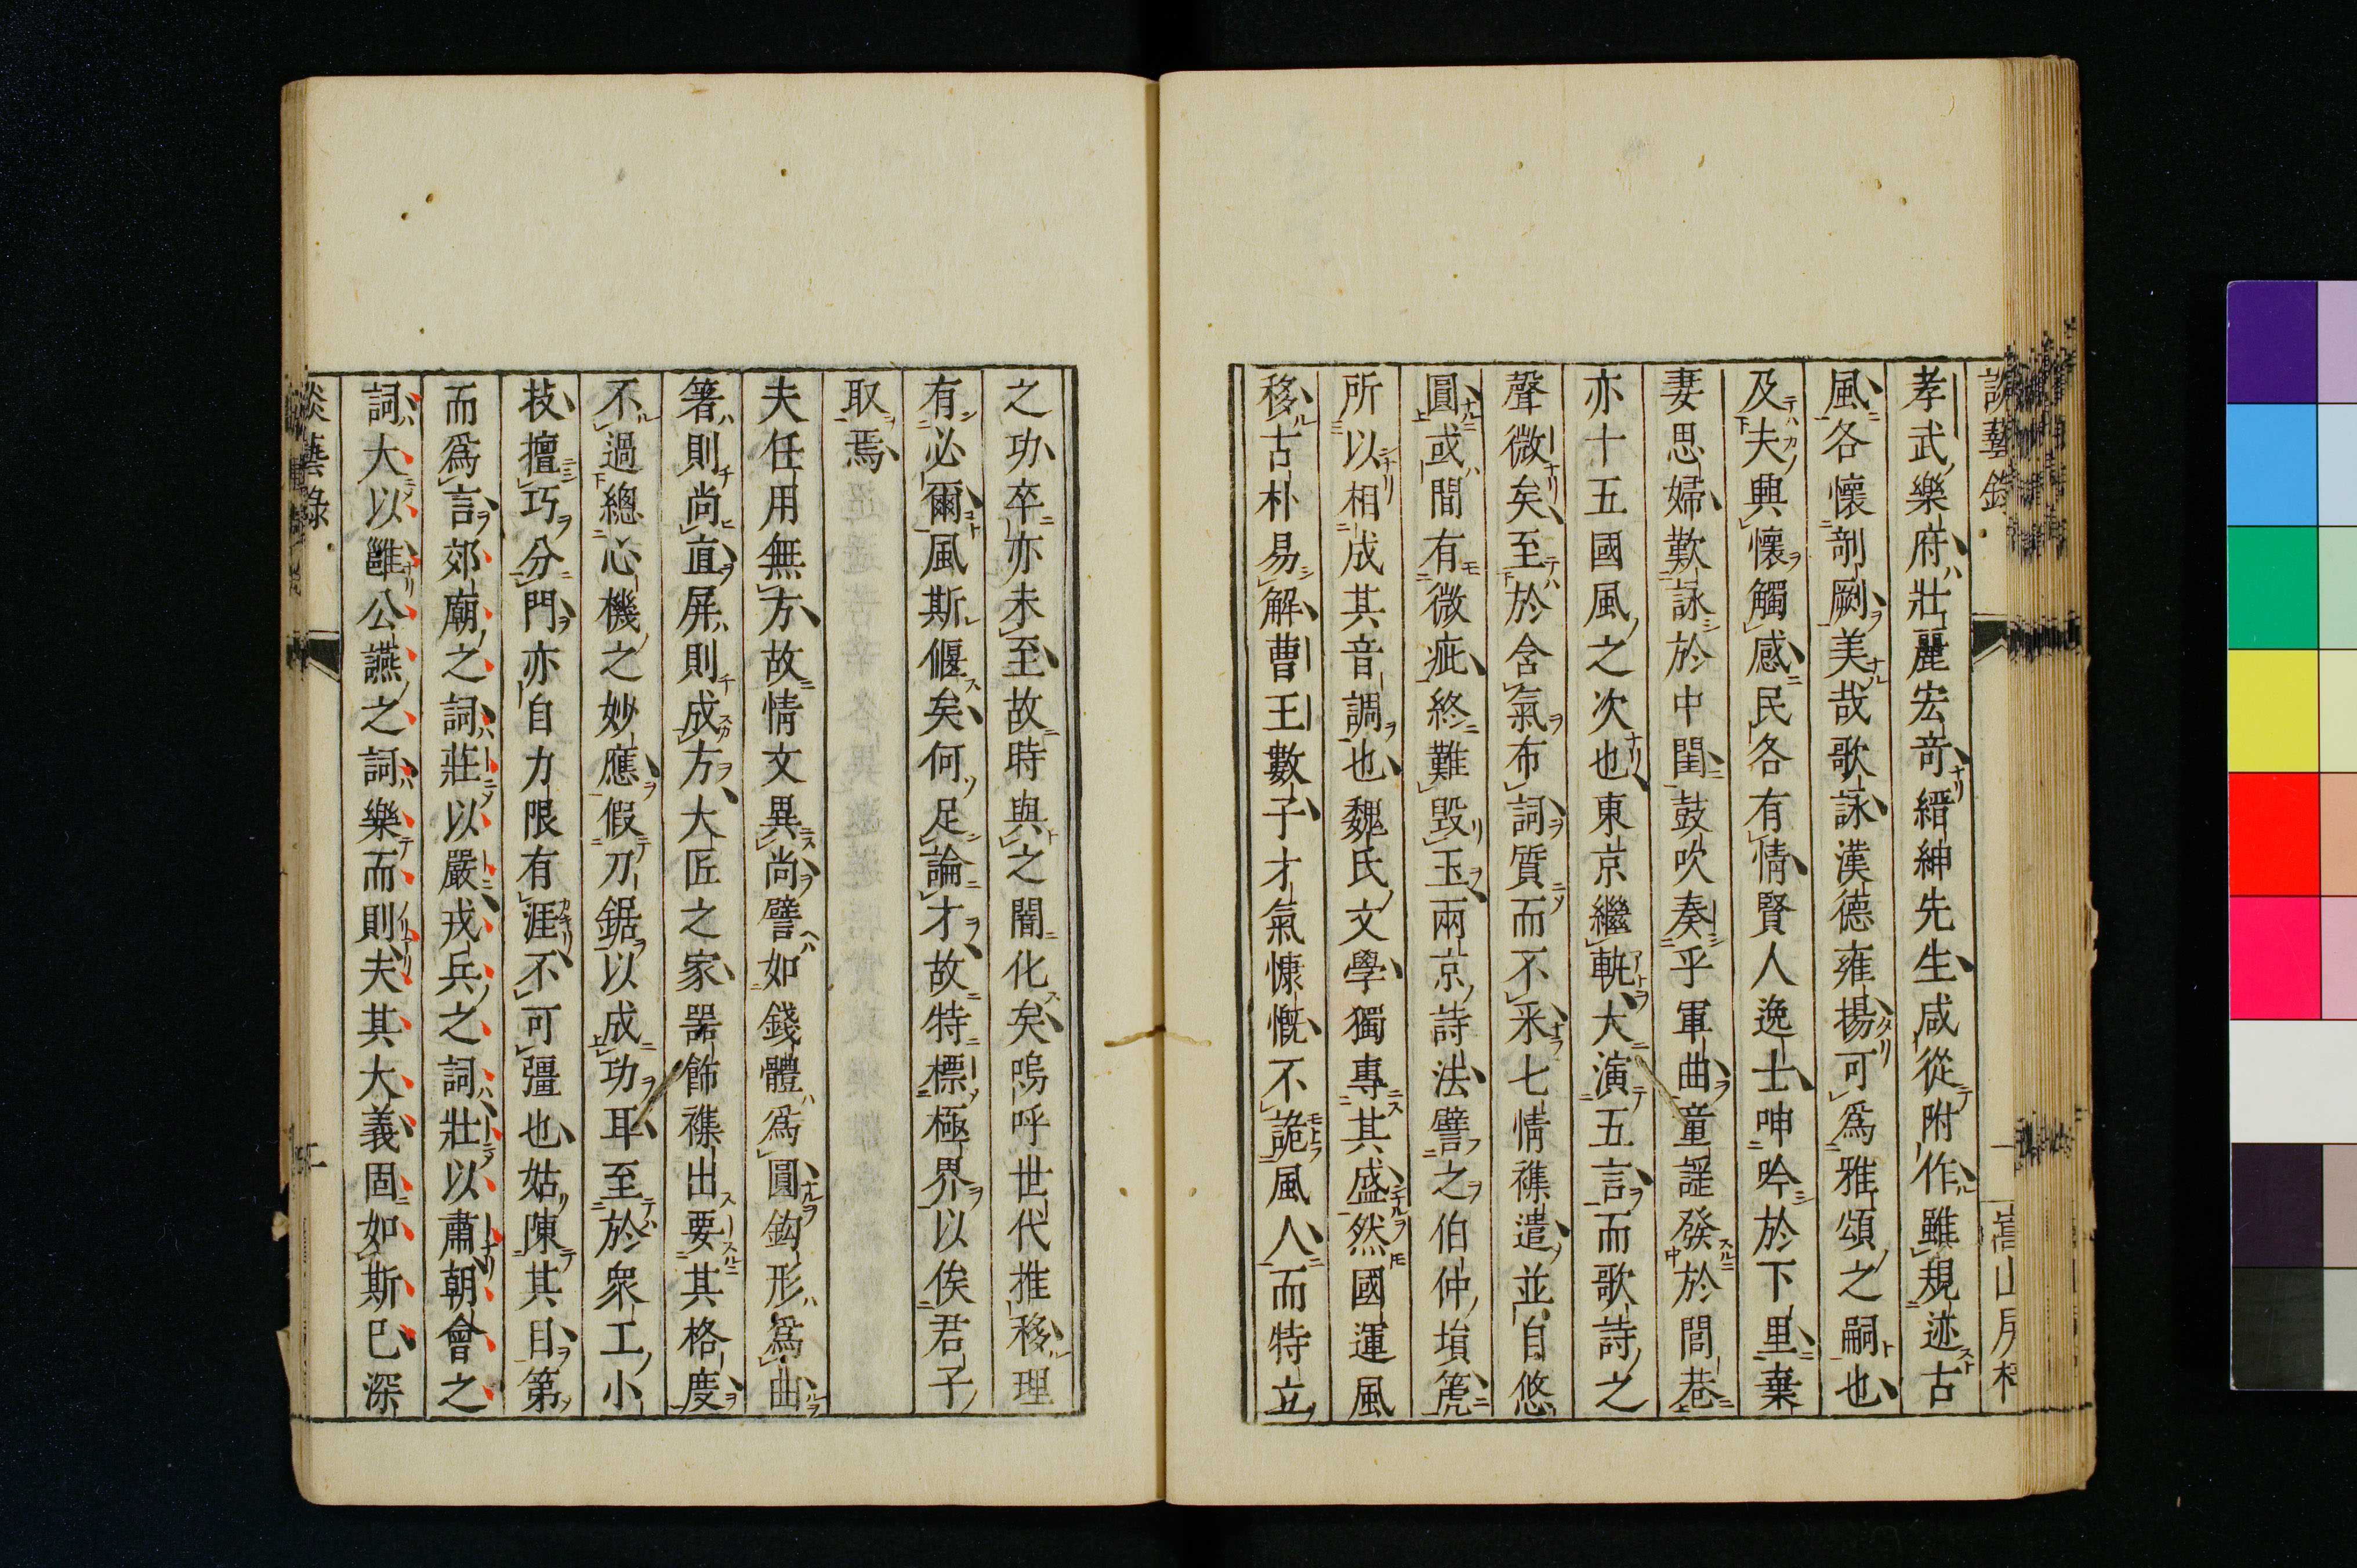 談藝錄
孝武樂府壯麗宏竒縉紳先生咸從附作雖規述古
風各懷剞劂美哉歌詠漢德雍揚可爲雅頌之嗣也
及夫興懷觸感民各有情賢人逸士呻吟於下里棄
妻思婦歎詠於中閨鼓吹奏乎軍曲童謡發於閭巷
亦十五國風之次也東京繼軌大演五言而歌詩之
聲微矣至於含氣布詞質而不采七情襍遣並自悠
圓或間有微疵終難毀玉兩京詩法譬之伯仲塤箎
所以相成其音調也魏氏文學獨專其盛然國運風
移古朴易解曹王數子才氣慷慨不詭風人而特立
之功卒亦未至故時與之闇化矣嗚呼世代推移理
有必爾風斯偃矣何足論才故特標極界以俟君子
取焉
夫任用無方故情文異尚譬如錢體爲圓鈎形爲曲
箸則尚直屏則成方大匠之家噐飾襍出要其格度
不過總心機之妙應假刀鋸以成功耳至於衆工小
技擅巧分門亦自力限有涯不可彊也姑陳其目第
而爲言郊廟之詞莊以嚴戎兵之詞壯以肅朝會之
詞大以雝公讌之詞樂而則夫其大義固如斯巳深
談藝錄